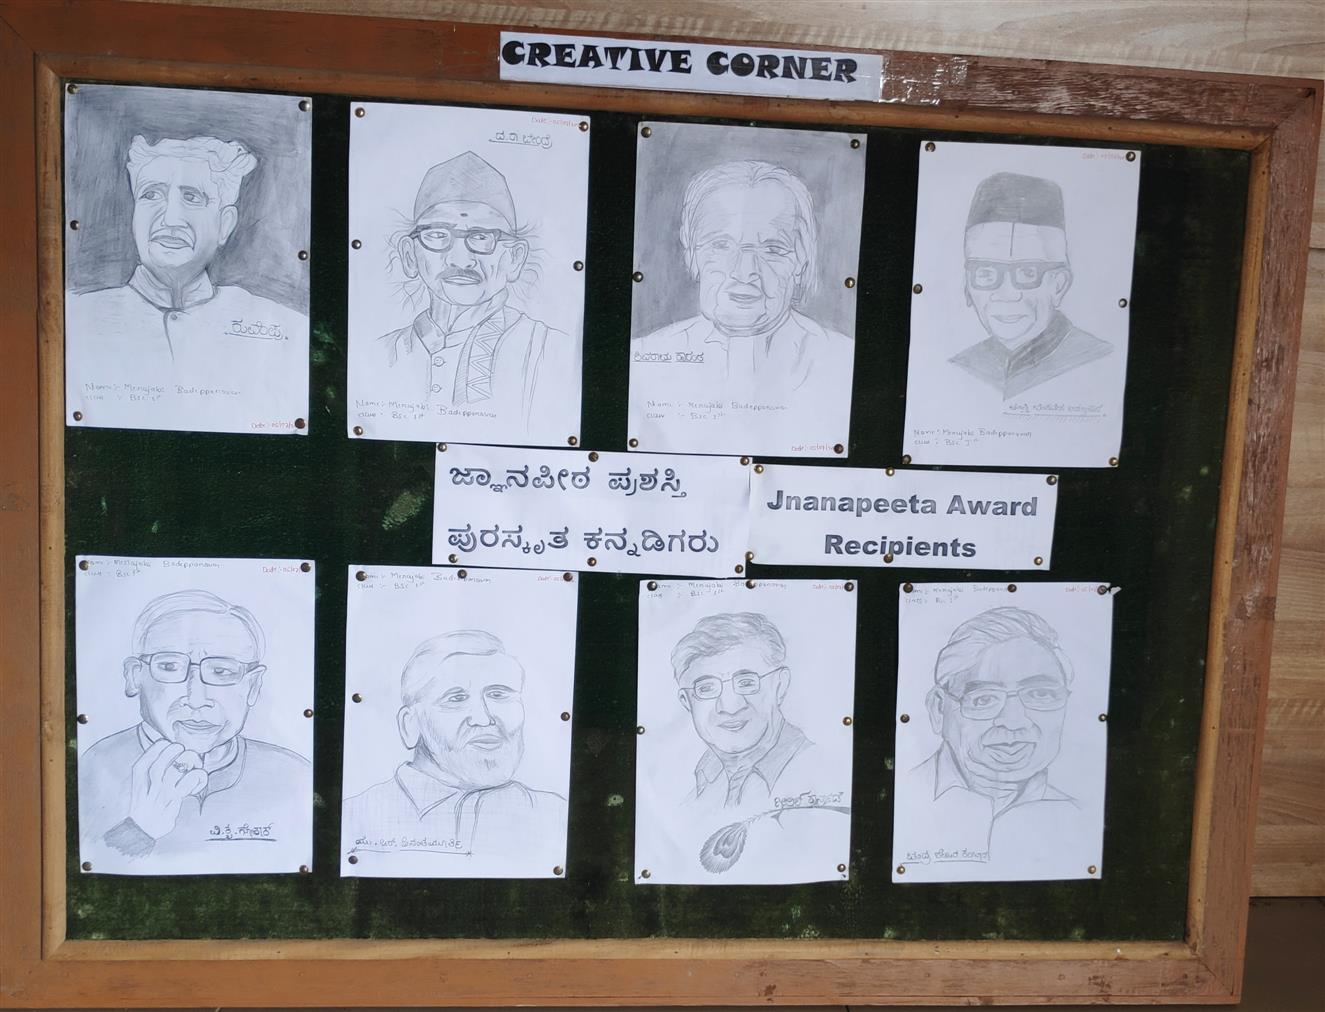 CREATIVE CORNER
ಕುವೆಂಪು.
Name:- Menajabi Badeppanavar
class :- BSC 1st
Date:-
Date:-
ದ.ರಾ ಬೇಂದ್ರೆ
Name:- Menajabi Badeppanavar
class :- BSC 1st
ಶಿವರಾಮ ಕಾರಂತ
Name:- Menajabi Badeppanavar
class :- BSC 1st
Date:-
Date:-
ಮಾಸ್ತಿ ವೆಂಕಟೇಶ ಅಯ್ಯಂಗಾರ್
Name:- Menajabi Badeppanavar
class :- BSC 1st
ಜ್ಞಾನಪೀಠ ಪ್ರಶಸ್ತಿ
ಪುರಸ್ಕೃತ ಕನ್ನಡಿಗರು
Jnanapeeta Award
Recipients
Name:- Menajabi Badeppanavar
class :- BSC 1st
Date:-
ವಿ.ಕೃ.ಗೋಕಾಕ್
Name:- Menajabi Badeppanavar
class :- BSC 1st
ಯು.ಆರ್.ಅನಂತಮೂರ್ತಿ
Name:- Menajabi Badeppanavar
class :- BSC 1st
ಗಿರೀಶ್ ಕಾರ್ನಾಡ
Name:- Menajabi Badeppanavar
class :- BSC 1st
ಚಂದ್ರ ಶೇಖರ ಕಂಬಾರ